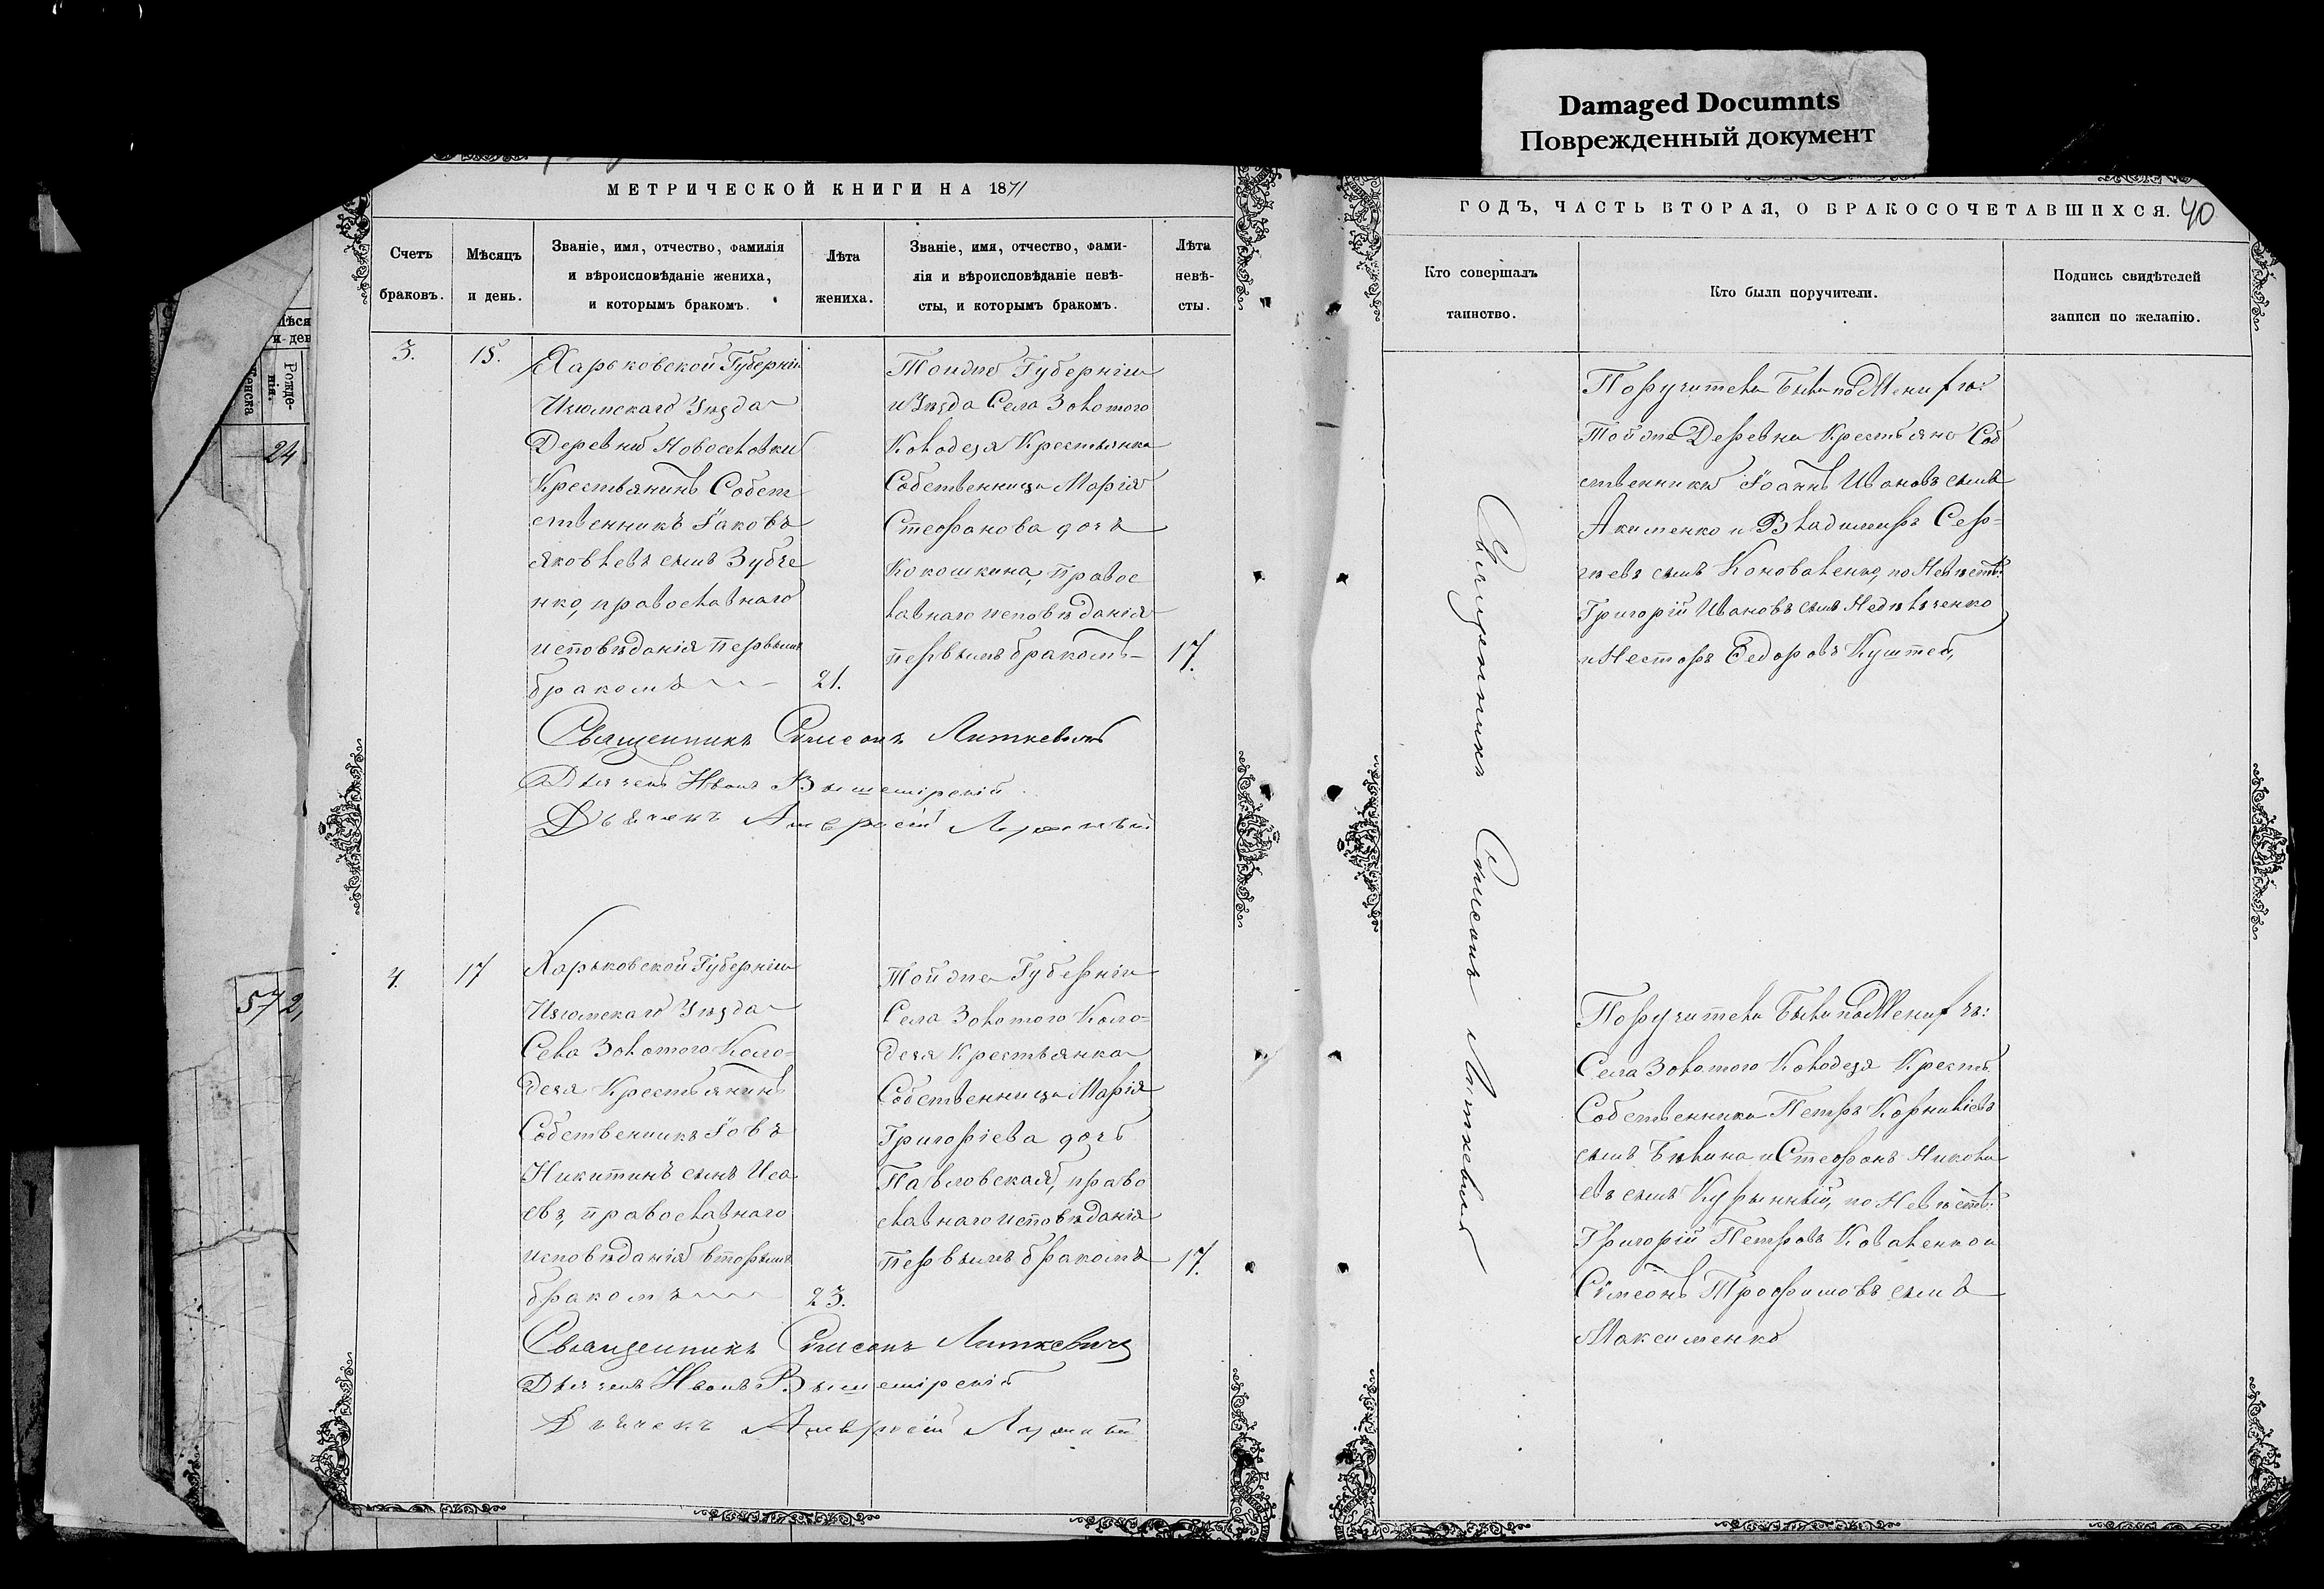 Damaged Documnts
Поврежденный документ
МЕТРИЧЕСКОЙ КНИГИ НА 1871
ГОДЪ, ЧАСТЬ ВТОРАЯ, О БРАКОСОЧЕТАВШИХСЯ. 40
Счетъ
браковъ.
Мѣсяцъ
и день.
Званіе, имя, отчество, фамилія
и вѣроисповѣданіе жениха,
и которымъ бракомъ.
Лѣта
жениха.
Званіе, имя, отчество, фами-
лія и вѣроисповѣданіе невѣ-
сты, и которымъ бракомъ.
Лѣта
невѣ-
сты.
Кто совершалъ
таинство.
Кто были поручители.
Подпись свидѣтелей
записи по желанію.
3.
15.
Харьковской Губерніи
Изюмскаго Уѣзда
Деревни Новоселовки
Крестьянинъ Собст
ственникъ Іаковъ
Яковлевъ сынъ Зубче
нко, православнаго
исповѣданія первымъ
бракомъ
21.
Тойже Губерніи
и Уѣзда Села Золотого
Колодезя Крестьянка
Собственница Марія
Стефанова дочь
Кокошкина, правос
лавнаго исповѣданія
первымъ бракомъ
17.
Священникъ Симеонъ Литкевичъ
Дьячекъ Иванъ
Дьячекъ
Священникъ Симеонъ Литкевичъ
Поручители были по Жених㸠:
Тойже Деревни Крестьяне Соб
ственники Іоаннъ Ивановъ сынъ
Акименко и Владимиръ Сер-
гѣевъ сынъ Коноваленко, по Невѣстѣ:
Григорій Ивановъ сынъ Недѣльченко
и Несторъ Ѳедоровъ
4.
17
Харьковской Губерніи
Изюмскаго Уѣзда
Села Золотого Коло-
дезя Крестьянинъ
Собственникъ Іовъ
Никитинъ сынъ Иса
евъ, православнаго
исповѣданія вторымъ
бракомъ
23.
Тойже Губерніи
Села Золотого Коло-
дезя Крестьянка
Собственница Марія
Григоріева дочь
Павловская, право
славнаго исповѣданія
первымъ бракомъ
17.
Священникъ Симеонъ Литкевичъ
Дьячекъ Иванъ
Дьячекъ
Поручители были по Женихѣ:
Села Золотого Колодезя Крестья:
Собственники Петръ Корниліевъ
сынъ Бѣлина и Стефанъ Никола
евъ сынъ Курынный, по Невѣстѣ:
Григорій Петровъ Коваленко и
Симеонъ Трофимовъ сынъ
Максименко
Мѣся
и ден
Рожде-
нія.
24
57
2,